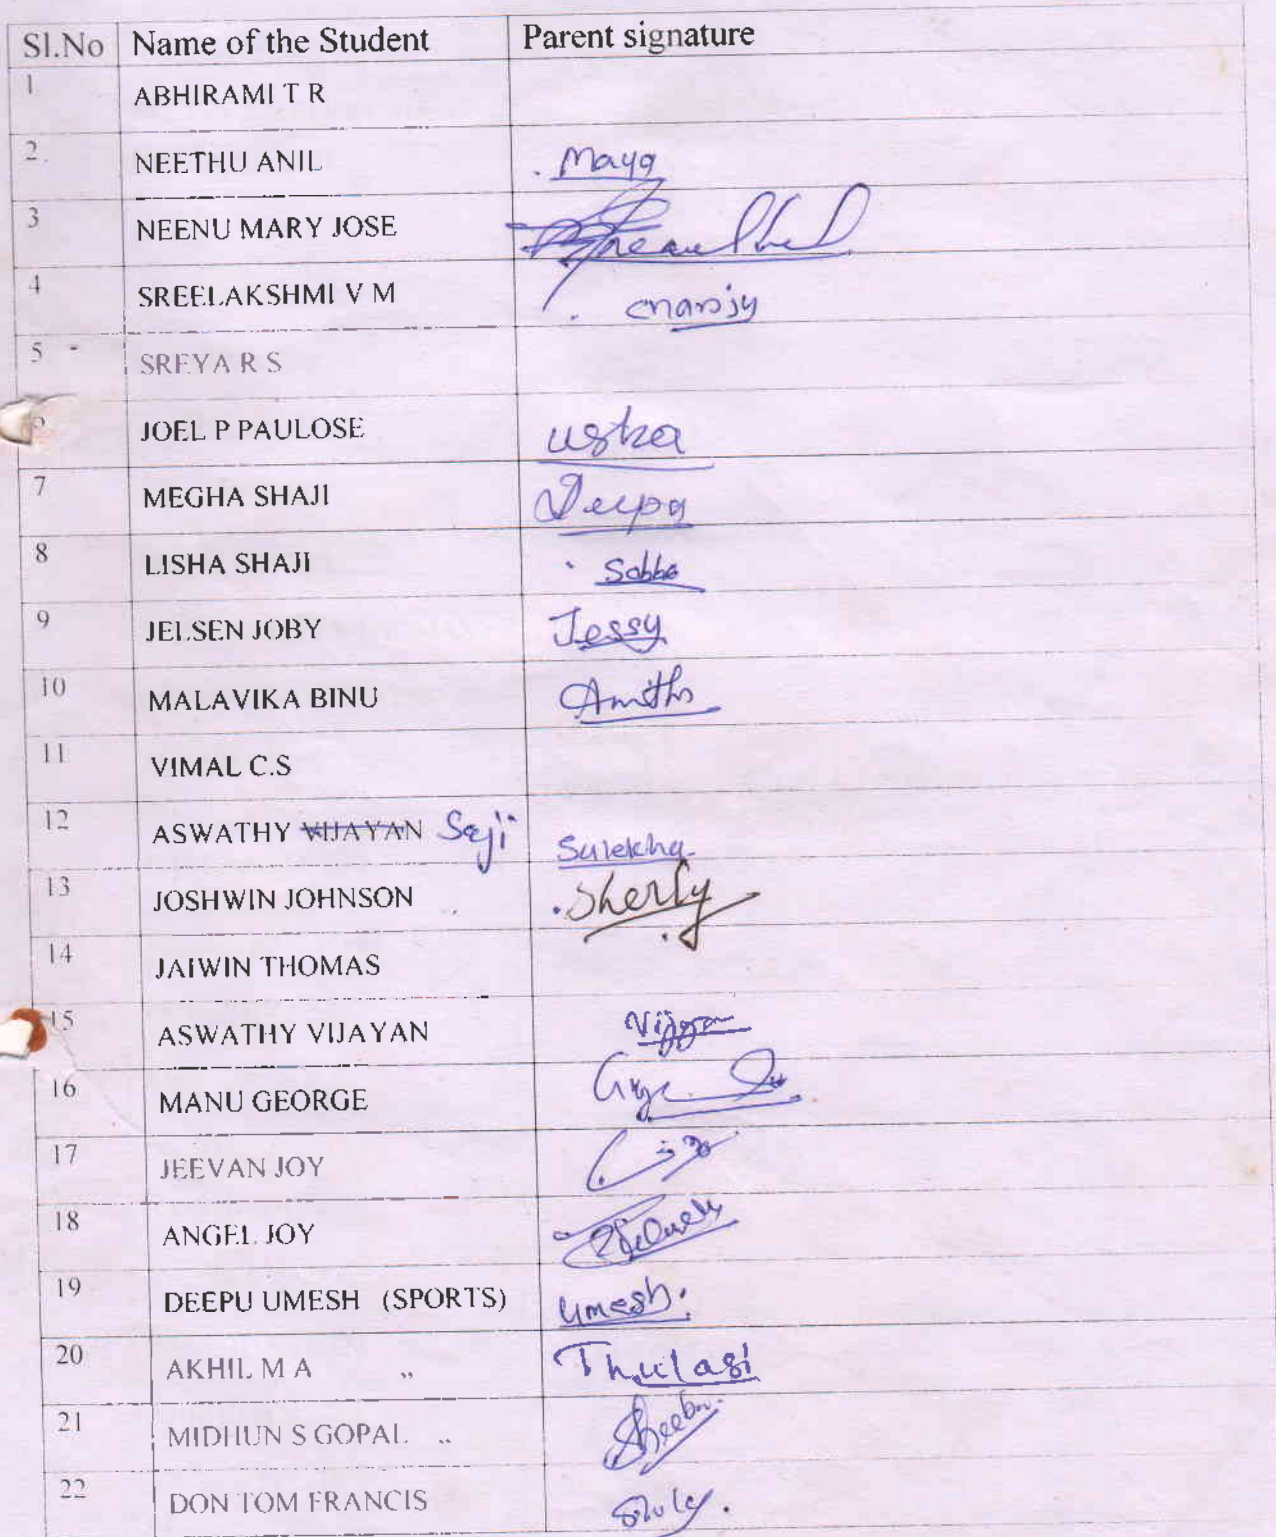 Sl.No Name of the Student Parent signature
1 ABHIRAMI T R
2. NEETHU ANIL Maya
3 NEENU MARY JOSE
4 SREELAKSHMI V M
5 SREYA R S
JOEL P PAULOSE usha
7 MEGHA SHAJI Deepa
8 LISHA SHAJI
9 JELSEN JOBY Jessy
10 MALAVIKA BINU
11 VIMAL C.S
12 ASWATHY VIJAYAN Saji Sulekha
13 JOSHWIN JOHNSON Sherly
14 JAIWIN THOMAS
15 ASWATHY VIJAYAN
16 MANU GEORGE
17 JEEVAN JOY
18 ANGEL JOY
19 DEEPU UMESH (SPORTS) Umesh.
20 AKHIL M A ,, Thulasi
21 MIDHUN S GOPAL ,, Sheeba
22 DON TOM FRANCIS